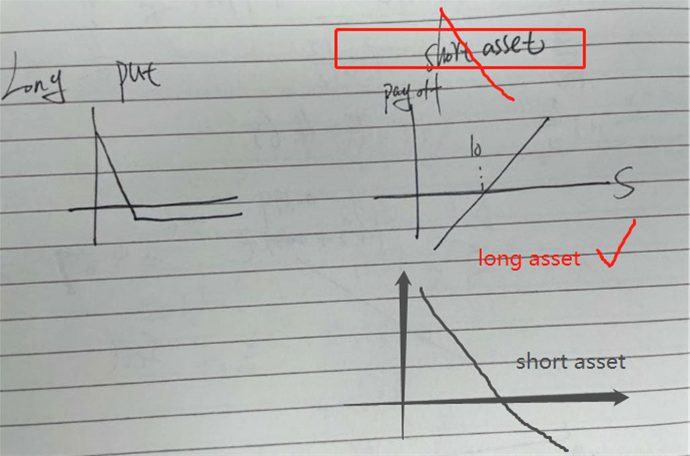 short asset
Long put
payoff
10
S
long asset
short asset